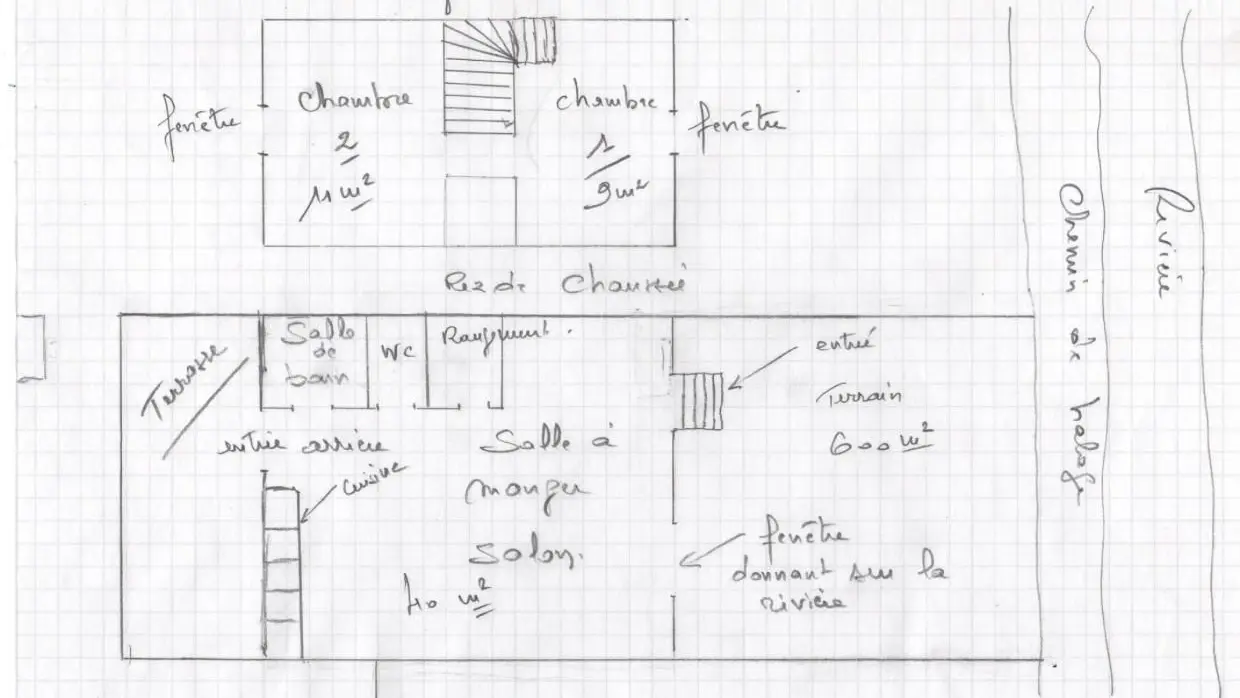 fenêtre
Chambre
2
11 m²
chambre
1
9 m²
fenêtre
Rivière
Chemin de halage
Rez de Chaussée
Terrasse
Salle
de
bain
WC
Rangement.
entrée
Terrain
600 m²
entrée arrière
cuisine
Salle à
manger
Salon.
40 m²
fenêtre
donnant sur la
rivière